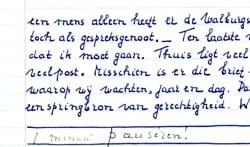 een mens alleen heeft er de walburgs
toch als gespreksgenoot. _ Ten laatste
dat ik moet gaan. Thuis ligt veel
veel post. Misschien is er die brief
waarop wij wachten, jaar en dag. Da
een springbron van gerechtigheid. W
pauseren!